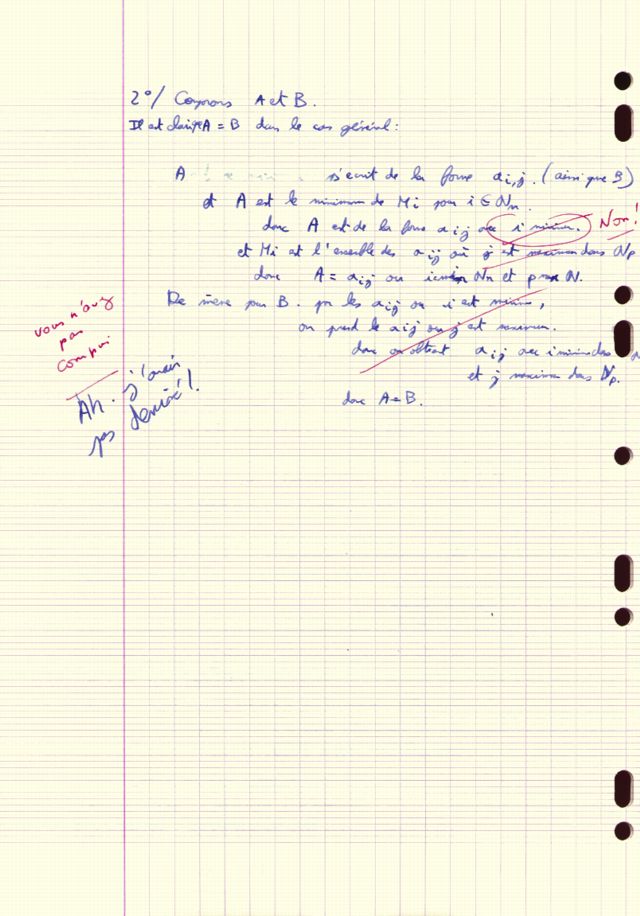 2°/ Comparons A et B.
Il est clair que A = B dans le cas général :
A s'écrit de la forme ai,j. (ainsi que B)
et A est le minimum de Mi pour i ∈ Nn.
donc A est de la forme aij avec i minimum. Non !
et Mi est l'ensemble des aij où j est maximum dans Np
donc A = ai,j où i min Nn et p max N.
De même pour B. pr les ai,j où i est minimum,
on prend le aij où j est maximum.
donc on obtient ai,j avec i minimum dans
et j maximum dans Np.
donc A = B.
vous n'avez
pas
compris
Ah. j'avais
pas deviné !